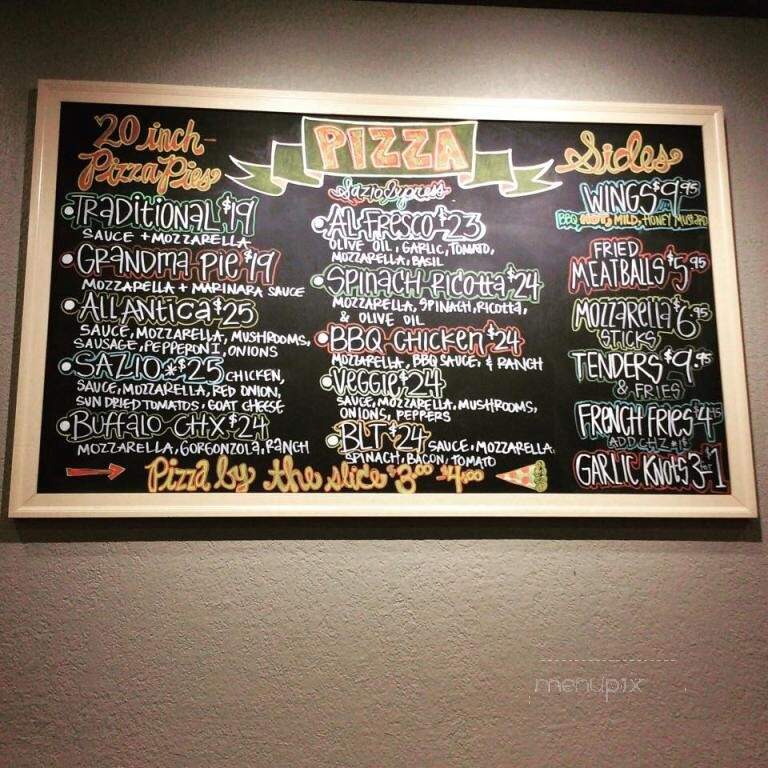 20 inch-
Pizza Pies
• TRADITIONAL $19
SAUCE + MOZZARELLA
• GRANDMA PIE $19
MOZZARELLA + MARINARA SAUCE
• ALL ANTICA $25
SAUCE, MOZZARELLA, MUSHROOMS,
SAUSAGE, PEPPERONI, ONIONS
• SAZIO * $25 CHICKEN,
SAUCE, MOZZARELLA, RED ONION,
SUN DRIED TOMATOS, GOAT CHEESE
• BUFFALO CHX $24
MOZZARELLA, GORGONZOLA, RANCH
PIZZA
Sazio Express
• AL FRESCO $23
OLIVE OIL, GARLIC, TOMATO,
MOZZARELLA, BASIL
• SPINACH RICOTTA $24
MOZZARELLA, SPINACH, RICOTTA,
& OLIVE OIL
• BBQ CHICKEN $24
MOZZARELLA, BBQ SAUCE, & RANCH
• VEGGIE $24
SAUCE, MOZZARELLA, MUSHROOMS,
ONIONS, PEPPERS
• BLT $24 SAUCE, MOZZARELLA
SPINACH, BACON, TOMATO
Pizza by the slice $3.00 - $4.00
Sides
WINGS $9.95
BBQ, HOT, MILD, HONEY MUSTARD
FRIED
MEATBALLS $5.95
MOZZARELLA $6.95
STICKS
TENDERS $9.95
& FRIES
FRENCH FRIES $4.95
ADD CHZ * 1$
GARLIC KNOTS 3 for $1
menupix